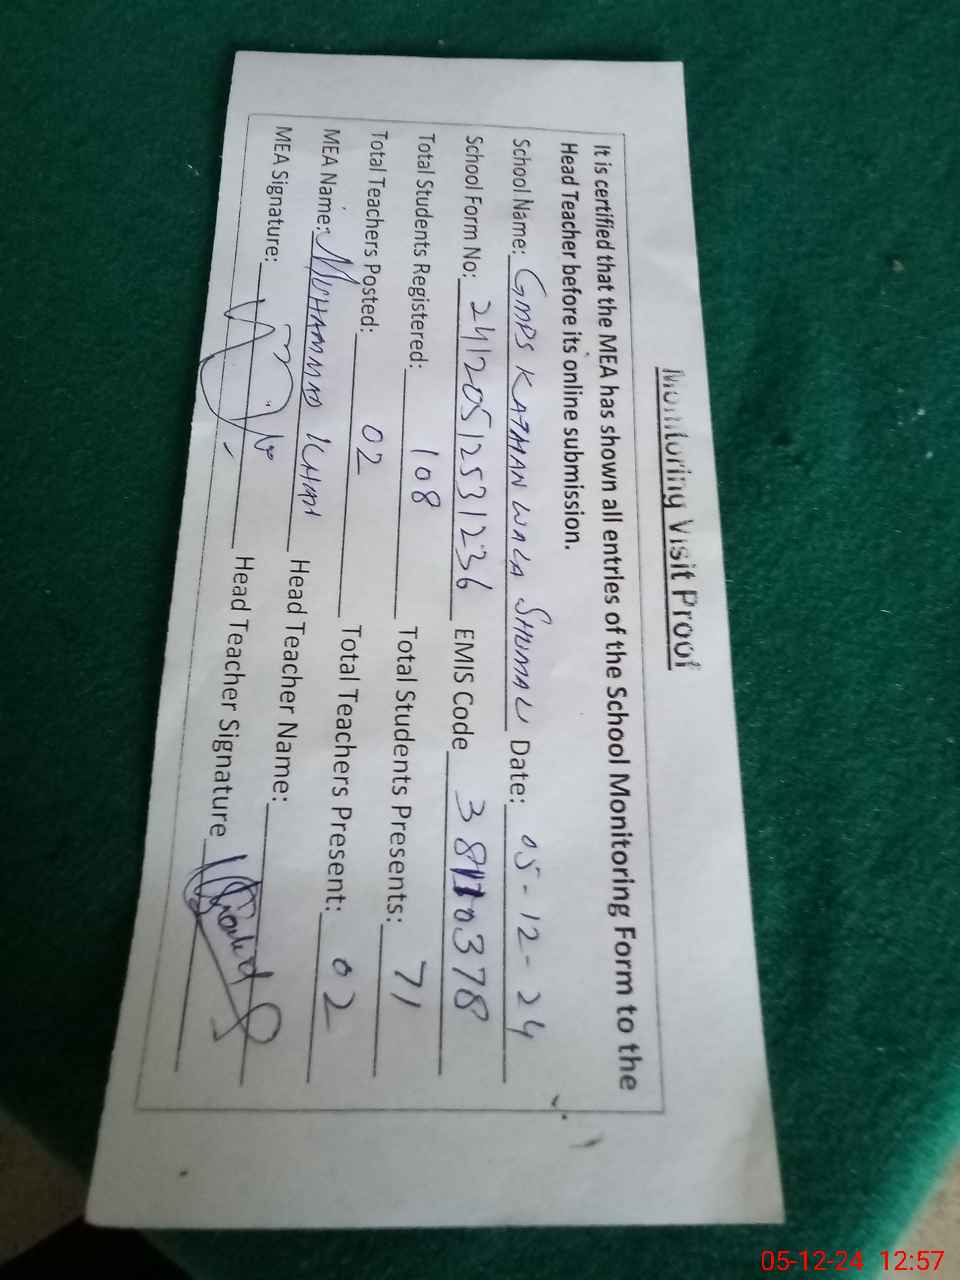 Monitoring Visit Proof
It is certified that the MEA has shown all entries of the School Monitoring Form to the
Head Teacher before its online submission.
School Name: GMPS KATMAN WALA SHUMALI Date: 05-12-24
School Form No: 24120512531236 EMIS Code 38110378
Total Students Registered: 108 Total Students Presents: 71
Total Teachers Posted: 02 Total Teachers Present: 02
MEA Name: MUHAMMAD KHAN Head Teacher Name:
MEA Signature: Head Teacher Signature
05-12-24 12:57